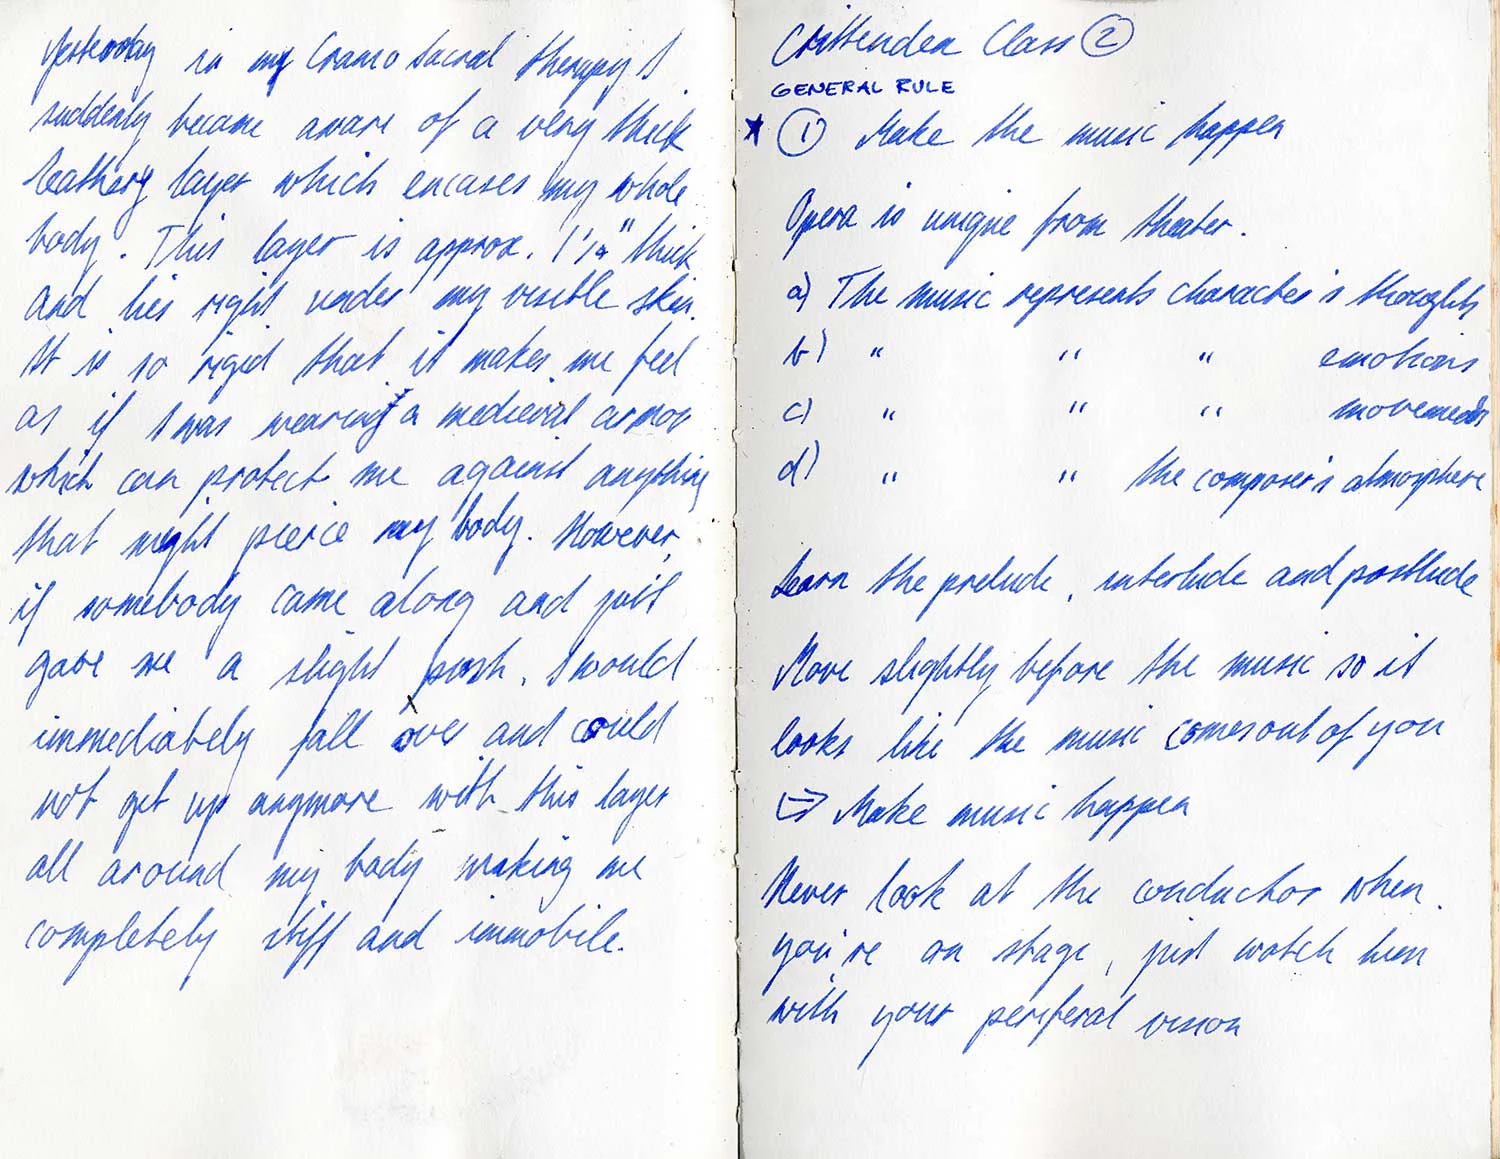 Yesterday in my Cranio Sacral therapy I
suddenly became aware of a very thick
leathery layer which encases my whole
body. This layer is approx. 1 1/2" thick
and lies right under my visible skin.
It is so rigid that it makes me feel
as if I was wearing a medieval armor
which can protect me against anything
that might pierce my body. However,
if somebody came along and just
gave me a slight push, I would
immediately fall over and could
not get up anymore with this layer
all around my body making me
completely stiff and immobile.
Crittenden Class ②
GENERAL RULE
★ ① Make the music happen
Opera is unique from theater.
a) The music represents character's thoughts
b) " " " emotions
c) " " " movements
d) " " the composer's atmosphere
Learn the prelude, interlude and postlude
Move slightly before the music so it
looks like the music comes out of you
=> Make music happen
Never look at the conductor when
you're on stage, just watch him
with your periferal vision